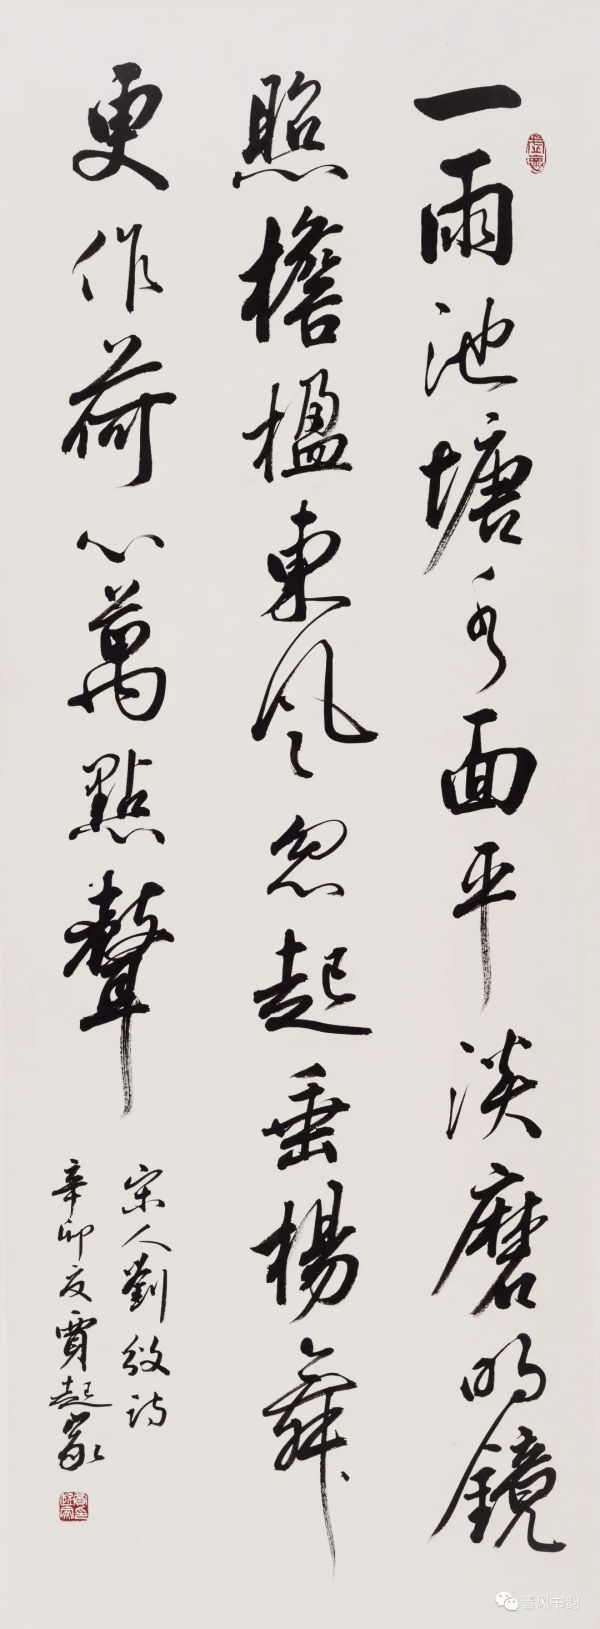 一雨池塘水面平淡磨明鏡
照檐楹東風忽起垂楊舞
更作荷心萬點聲
宋人劉攽詩
辛卯夏賈起家
晋风书韵